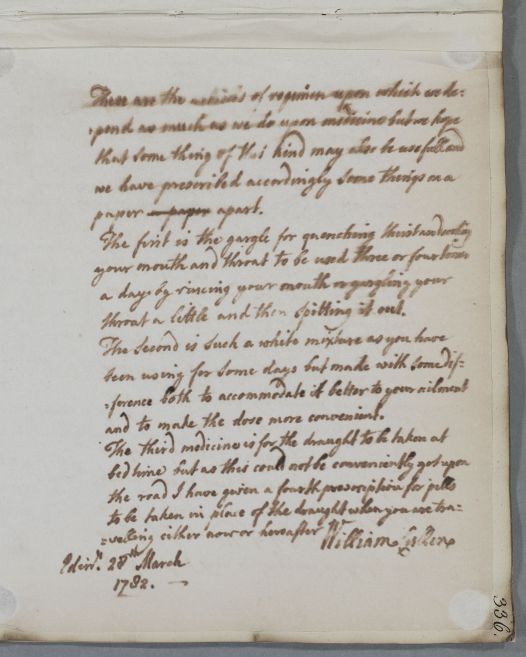 These are the articles of regimen upon which we de=
=pend as much as we do upon medicine but we hope
that some thing of this kind may also be usefull and
we have prescribed accordingly some things on a
paper apart.
The first is the gargle for quenching thirst and
your mouth and throat to be used three or four times
a day by rincing your mouth or gargling your
throat a little and then spitting it out.
The Second is such a white mixture as you have
been using for some days but made with some dif=
=ference both to accommodate it better to your ailment
and to make the dose more convenient.
The third medicine is for the draught to be taken at
bed time but as this could not be conveniently got upon
the road I have given a fourth prescription for pills
to be taken in place of the draught when you are tra=
=velling either now or hereafter
William Cullen
Edinr. 28th March
1782.
336.